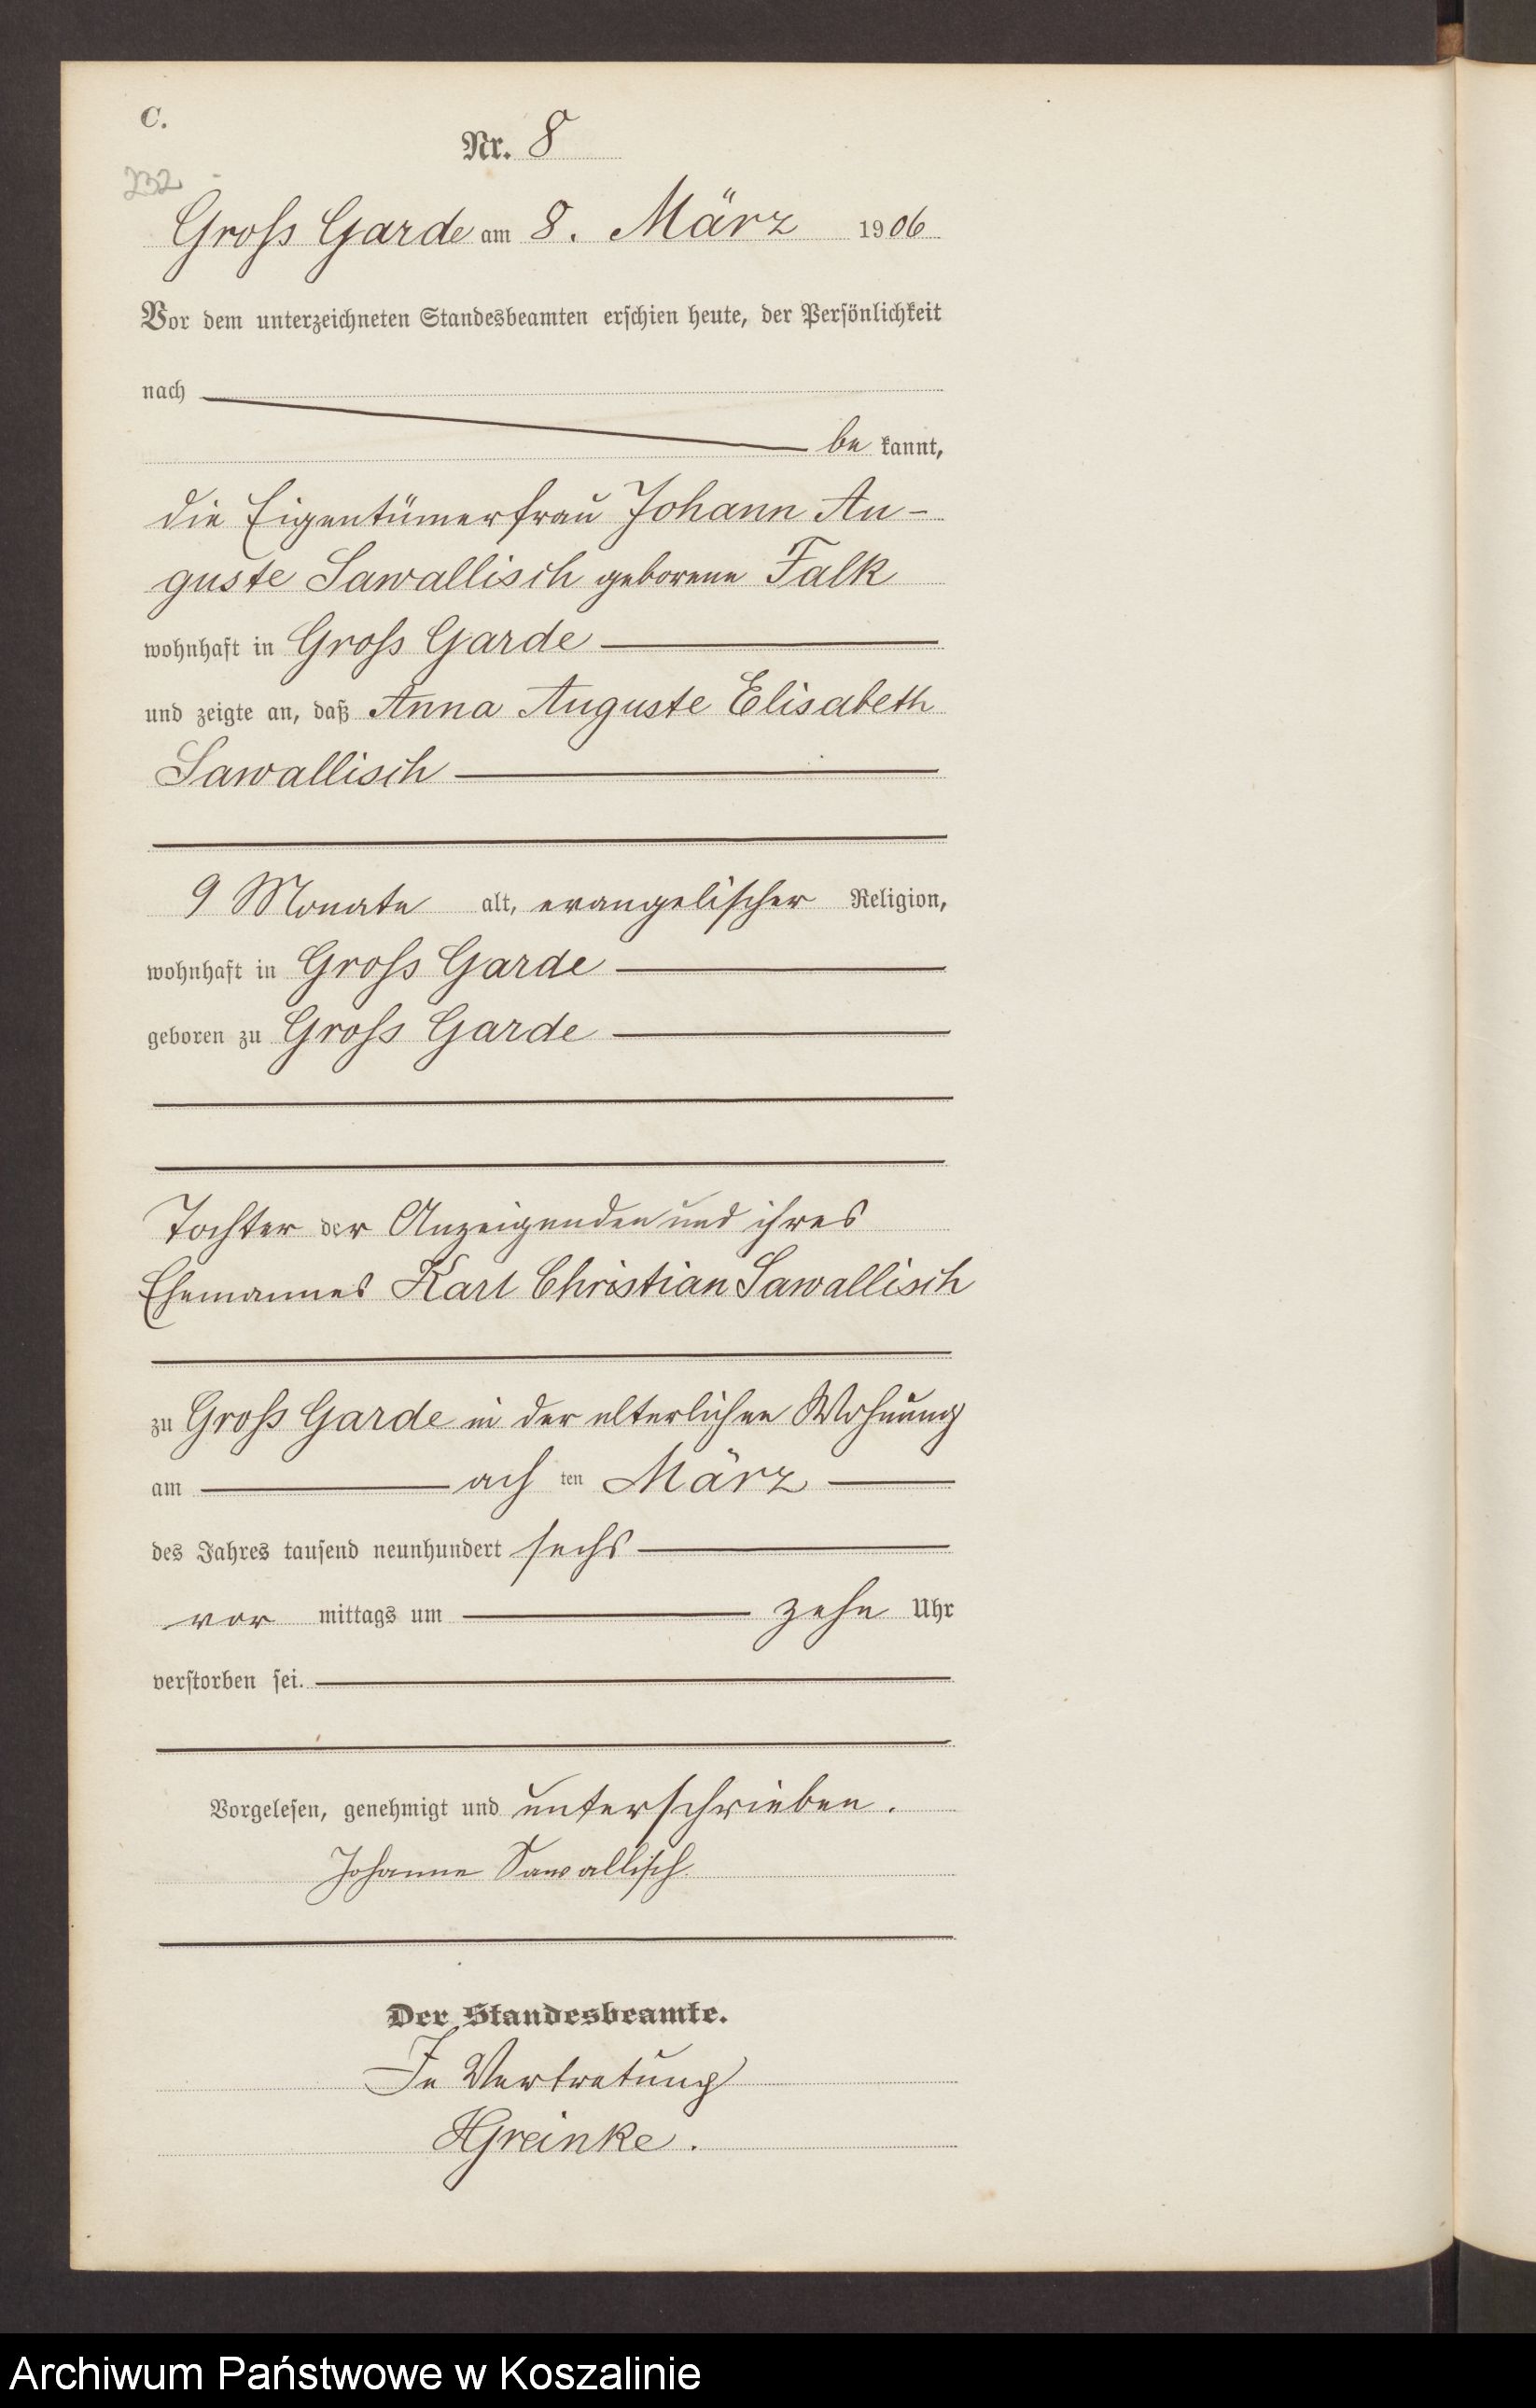 C.
Nr. 8
232
Gross Garde am 8. März 1906
Vor dem unterzeichneten Standesbeamten erschien heute, der Persönlichkeit
nach
be kannt,
die Eigentümerfrau Johann Au-
guste Sawallisch geborene Falk
wohnhaft in Gross Garde
und zeigte an, daß Anna Auguste Elisabeth
Sawallisch
9 Monate alt, evangelischer Religion,
wohnhaft in Gross Garde
geboren zu Gross Garde
Tochter der Anzeigenden und ihres
Ehemannes Karl Christian Sawallisch
zu Gross Garde in der elterlichen Wohnung
am ach ten März
des Jahres tausend neunhundert sechs
vor mittags um zehn Uhr
verstorben sei.
Vorgelesen, genehmigt und unterschrieben.
Johanne Sawallisch
Der Standesbeamte.
In Vertretung
HGreinke.
Archiwum Państwowe w Koszalinie